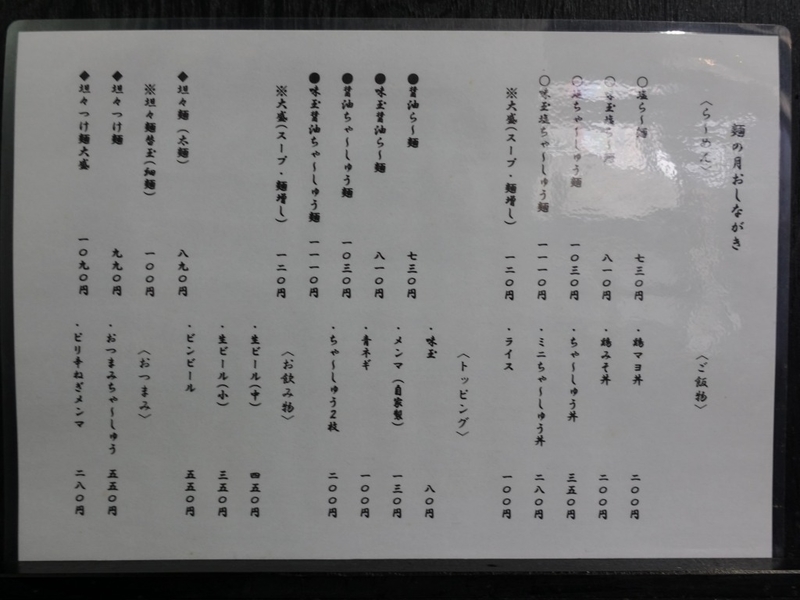 麺の月おしながき
〈らーめん〉
○塩らー麺 七三〇円
○味玉塩らー麺 八一〇円
○塩ちゃーしゅう麺 一〇三〇円
○味玉塩ちゃーしゅう麺 一一一〇円
※大盛（スープ・麺増し） 一二〇円
●醤油らー麺 七三〇円
●味玉醤油らー麺 八一〇円
●醤油ちゃーしゅう麺 一〇三〇円
●味玉醤油ちゃーしゅう麺 一一一〇円
※大盛（スープ・麺増し） 一二〇円
◆坦々麺（太麺） 八九〇円
※坦々麺替玉（細麺） 一〇〇円
◆坦々つけ麺 九九〇円
◆坦々つけ麺大盛 一〇九〇円
〈ご飯物〉
・鶏マヨ丼 二〇〇円
・鶏みそ丼 二〇〇円
・ちゃーしゅう丼 三五〇円
・ミニちゃーしゅう丼 二八〇円
・ライス 一〇〇円
〈トッピング〉
・味玉 八〇円
・メンマ（自家製） 一三〇円
・青ネギ 一〇〇円
・ちゃーしゅう2枚 二〇〇円
〈お飲み物〉
・生ビール（中） 四五〇円
・生ビール（小） 三五〇円
・ビンビール 五五〇円
〈おつまみ〉
・おつまみちゃーしゅう 五五〇円
・ピリ辛ねぎメンマ 二八〇円